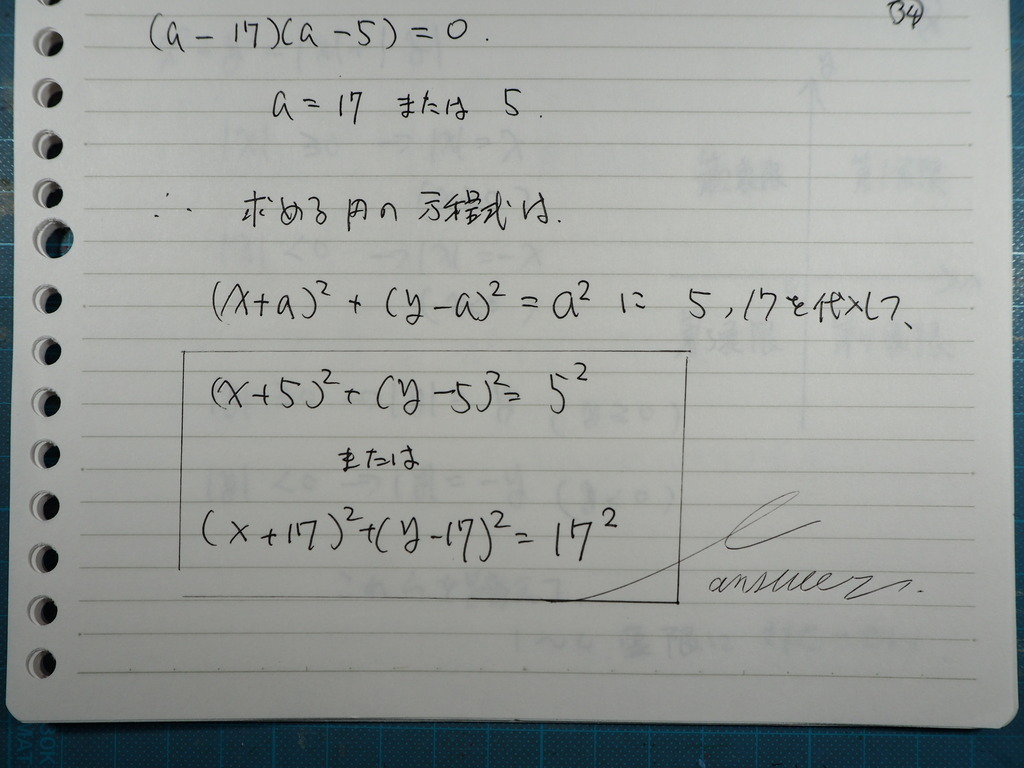 34
(a - 17)(a - 5) = 0.
a = 17 または 5.
∴ 求める円の方程式は.
(x+a)² + (y-a)² = a² に 5, 17を代入して、
(x+5)² + (y-5)² = 5²
または
(x+17)²+(y-17)² = 17²
answer.